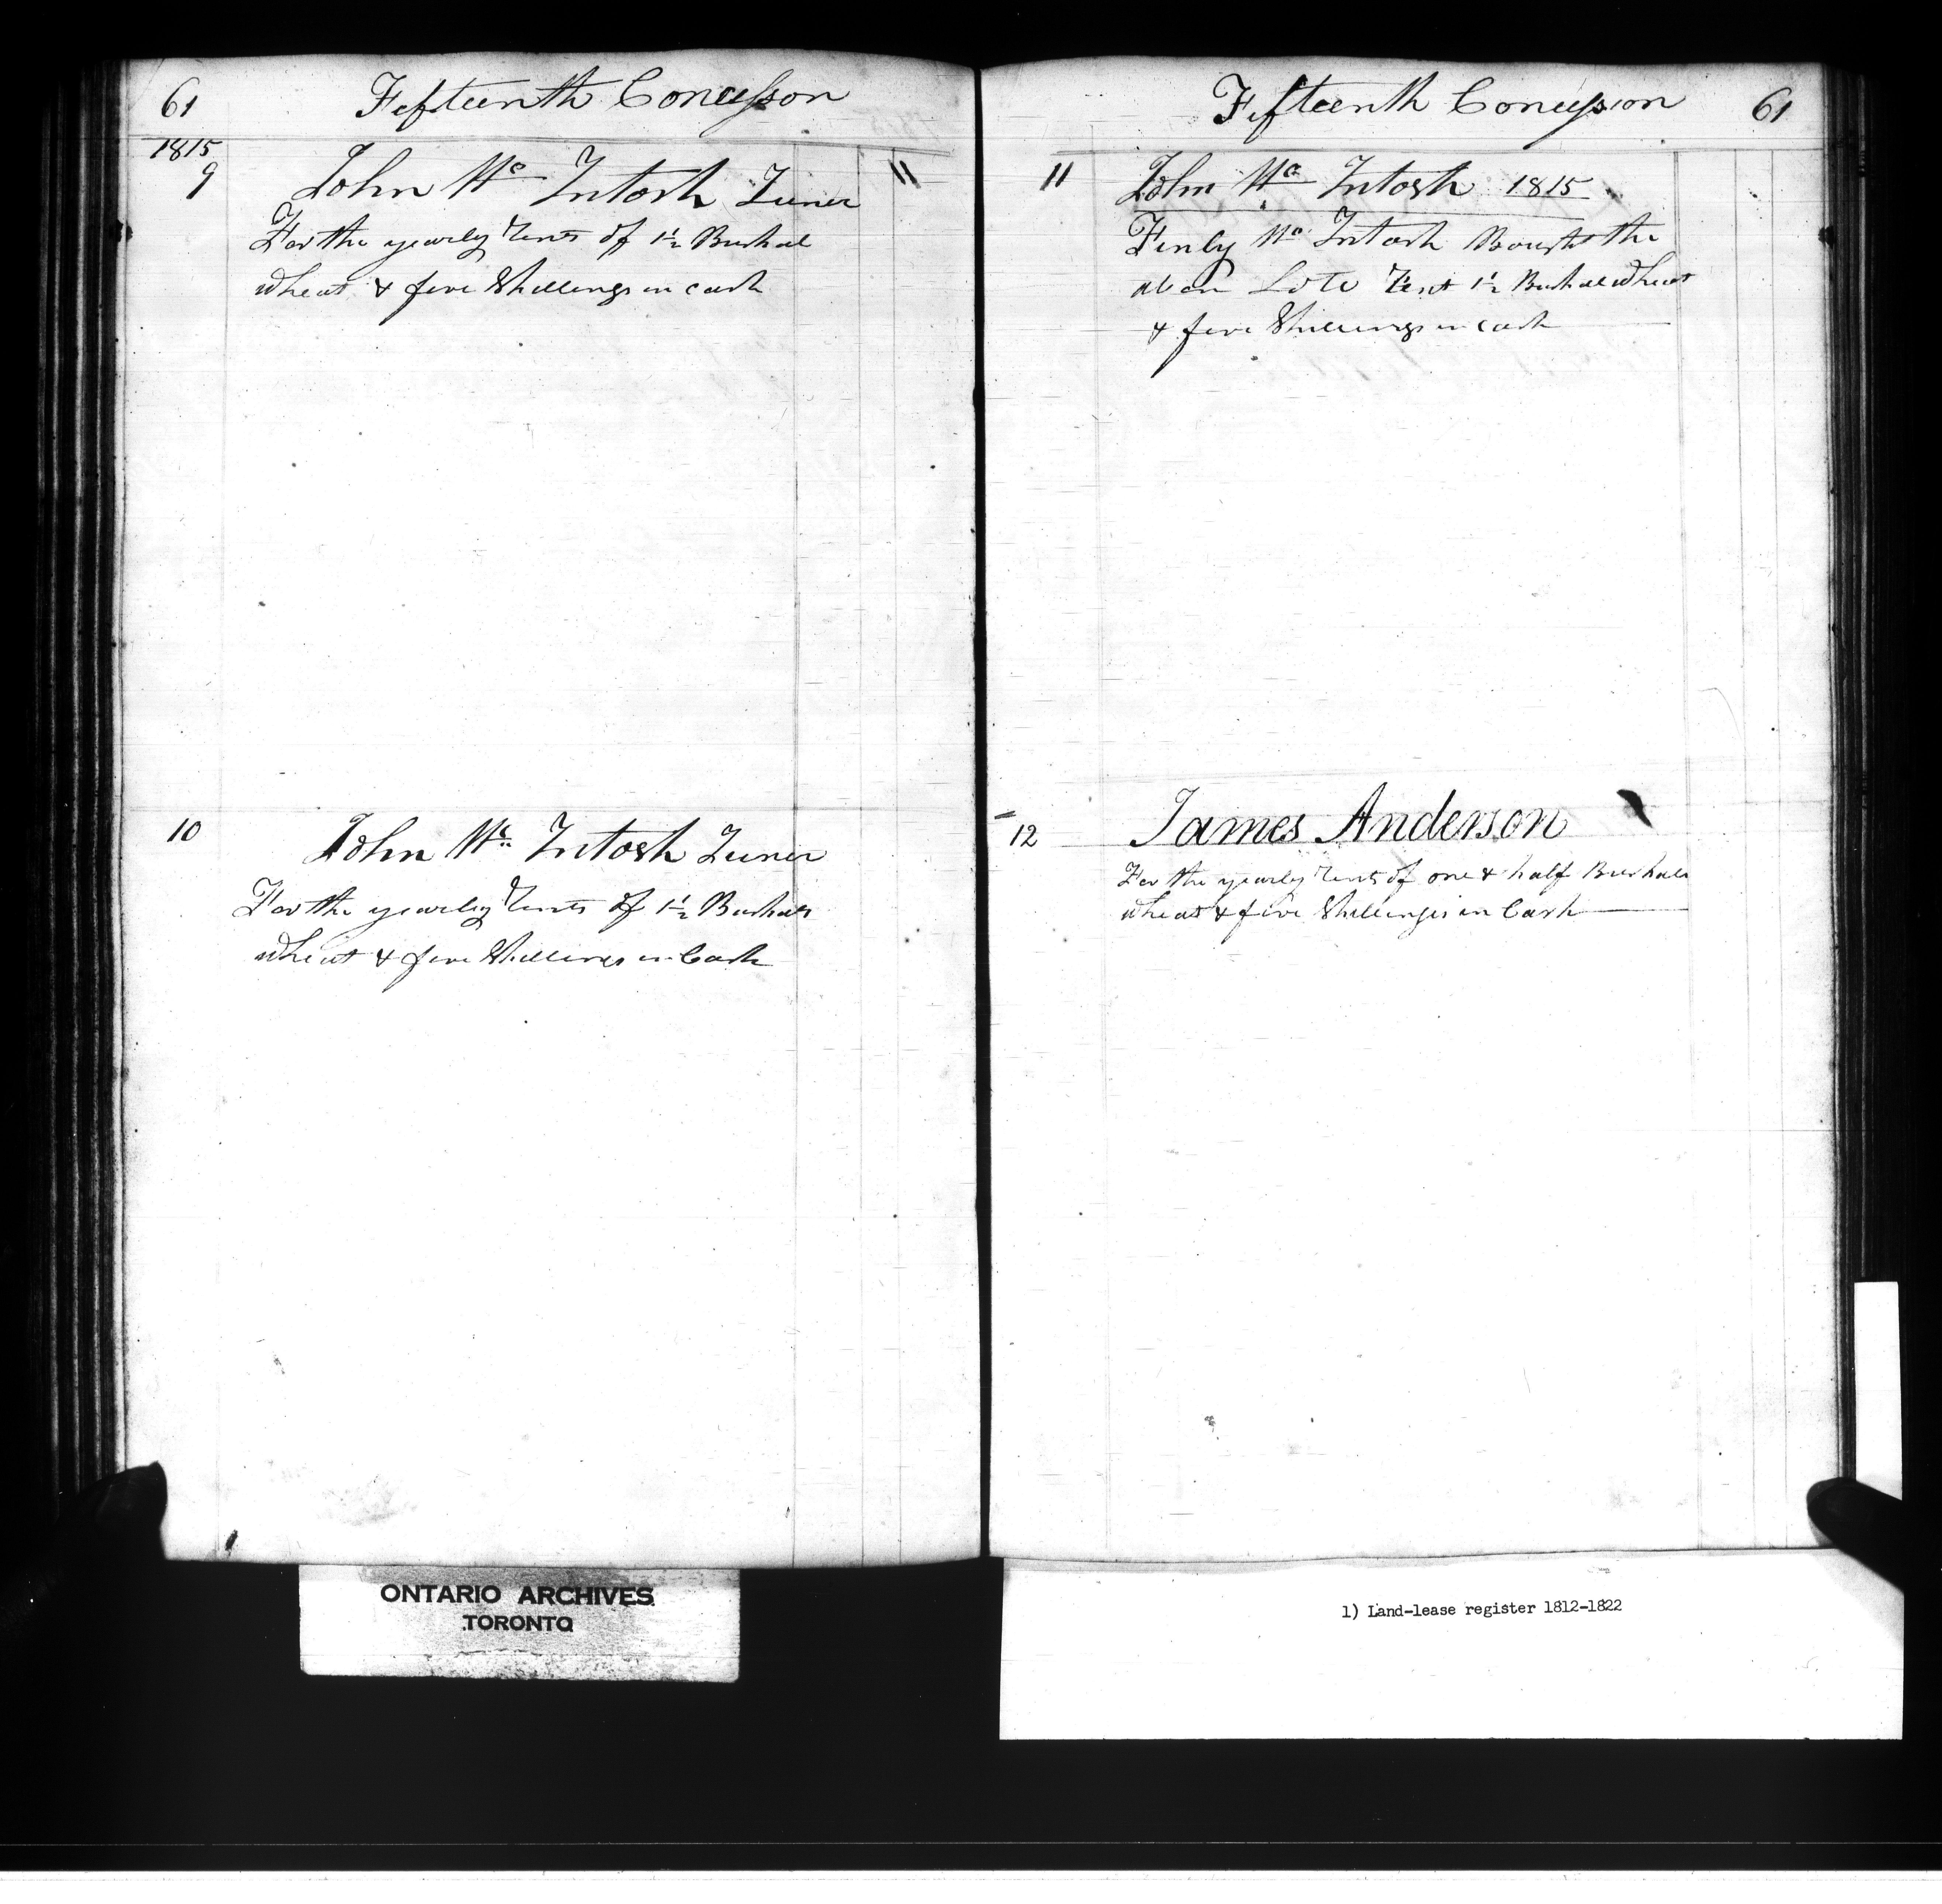 61 Fifteenth Concesson
1815
9 John Mc Intosh Juner 11
For the yearly rents of 1½ Bushal
wheat & five Shillings in cash
10 John Mc Intosh Juner
For the yearly rents of 1½ Bushals
wheat & five Shillings in Cash
Fifteenth Concession 61
11 John Mc Intosh 1815
Finly Mc Intosh Bought the
abov Lote Rent 1½ Bushal wheat
& five Shillings in cash
12 James Anderson
For the yearly rents of one & half Bushals
wheat & five Shillings in Cash
ONTARIO ARCHIVES
TORONTO
1) Land-lease register 1812-1822